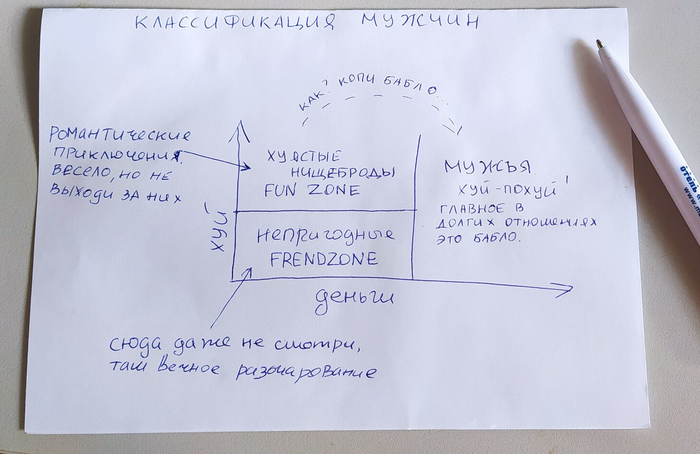 КЛАССИФИКАЦИЯ МУЖЧИН
КАК? КОПИ БАБЛО...
РОМАНТИЧЕСКИЕ
ПРИКЛЮЧЕНИЯ.
ВЕСЕЛО, НО НЕ
ВЫХОДИ ЗА НИХ
ХУЯСТЫЕ
НИЩЕБРОДЫ
FUN ZONE
МУЖЬЯ
ХУЙ-ПОХУЙ!
ГЛАВНОЕ В
ДОЛГИХ ОТНОШЕНИЯХ
ЭТО БАБЛО.
непригодные
FRENDZONE
ХУЙ
деньги
сюда даже не смотри,
там вечное разочарование